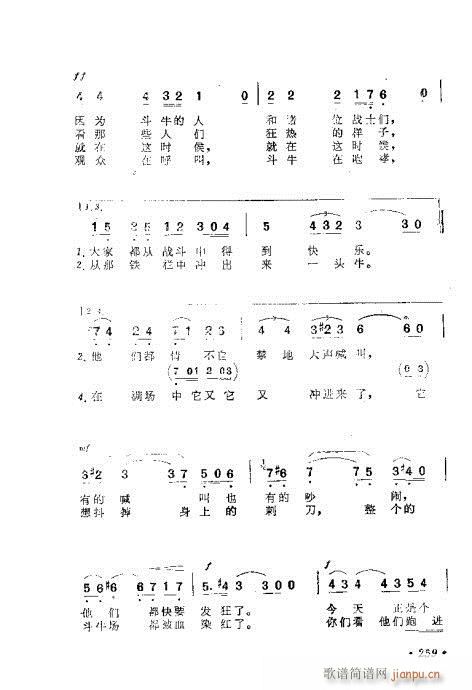 ff
4 4 4 3 2 1 0 2 2 2 1 7 6 0
因为 斗牛的人 和诸 位战士们，
看那 些人们 狂热 的样子，
就在 这时候， 就在 这时候，
观众 在呼叫， 斗牛 在咆哮，
1.3.
1 5 2 5 1 2 1 2 3 0 4 5 4 3 2 3 3 0
1.大家 都从 战斗 中 得 到 快 乐。
2.从那 铁 栏中 冲 出 来 一 头 牛。
2.4
7 4 2 1 2 7 6 2 4 4 3 #2 3 6 6 0
2.他 们都 情 不自 禁地 大声喊叫，
(7 0 1 2 0 3) (0 3)
4.在 满场 中它又它 又 冲进来了， 它
mf
3 #2 3 3 7 5 0 6 7 #6 7 7 5 3 #4 0
有的 喊 叫也 有的 吵 闹，
想抖 掉 身上的 刺刀， 整个的
f f
5 6 #5 6 6 7 1 7 5. #4 3 0 0 4 3 4 4 3 5 4
他 们 都快要 发狂了。 今天 正是个
斗牛场 都被血 染红了。 你们看 他们跑 进
• 259 •
歌谱简谱网 jianpu.cn